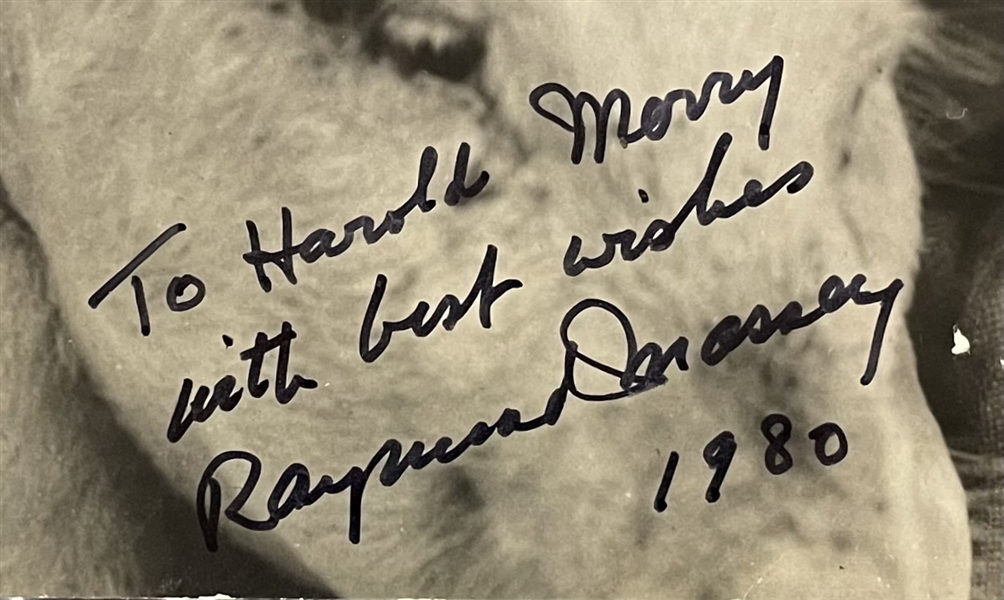 To Harold Morry
with best wishes
Raymond Massey
1980